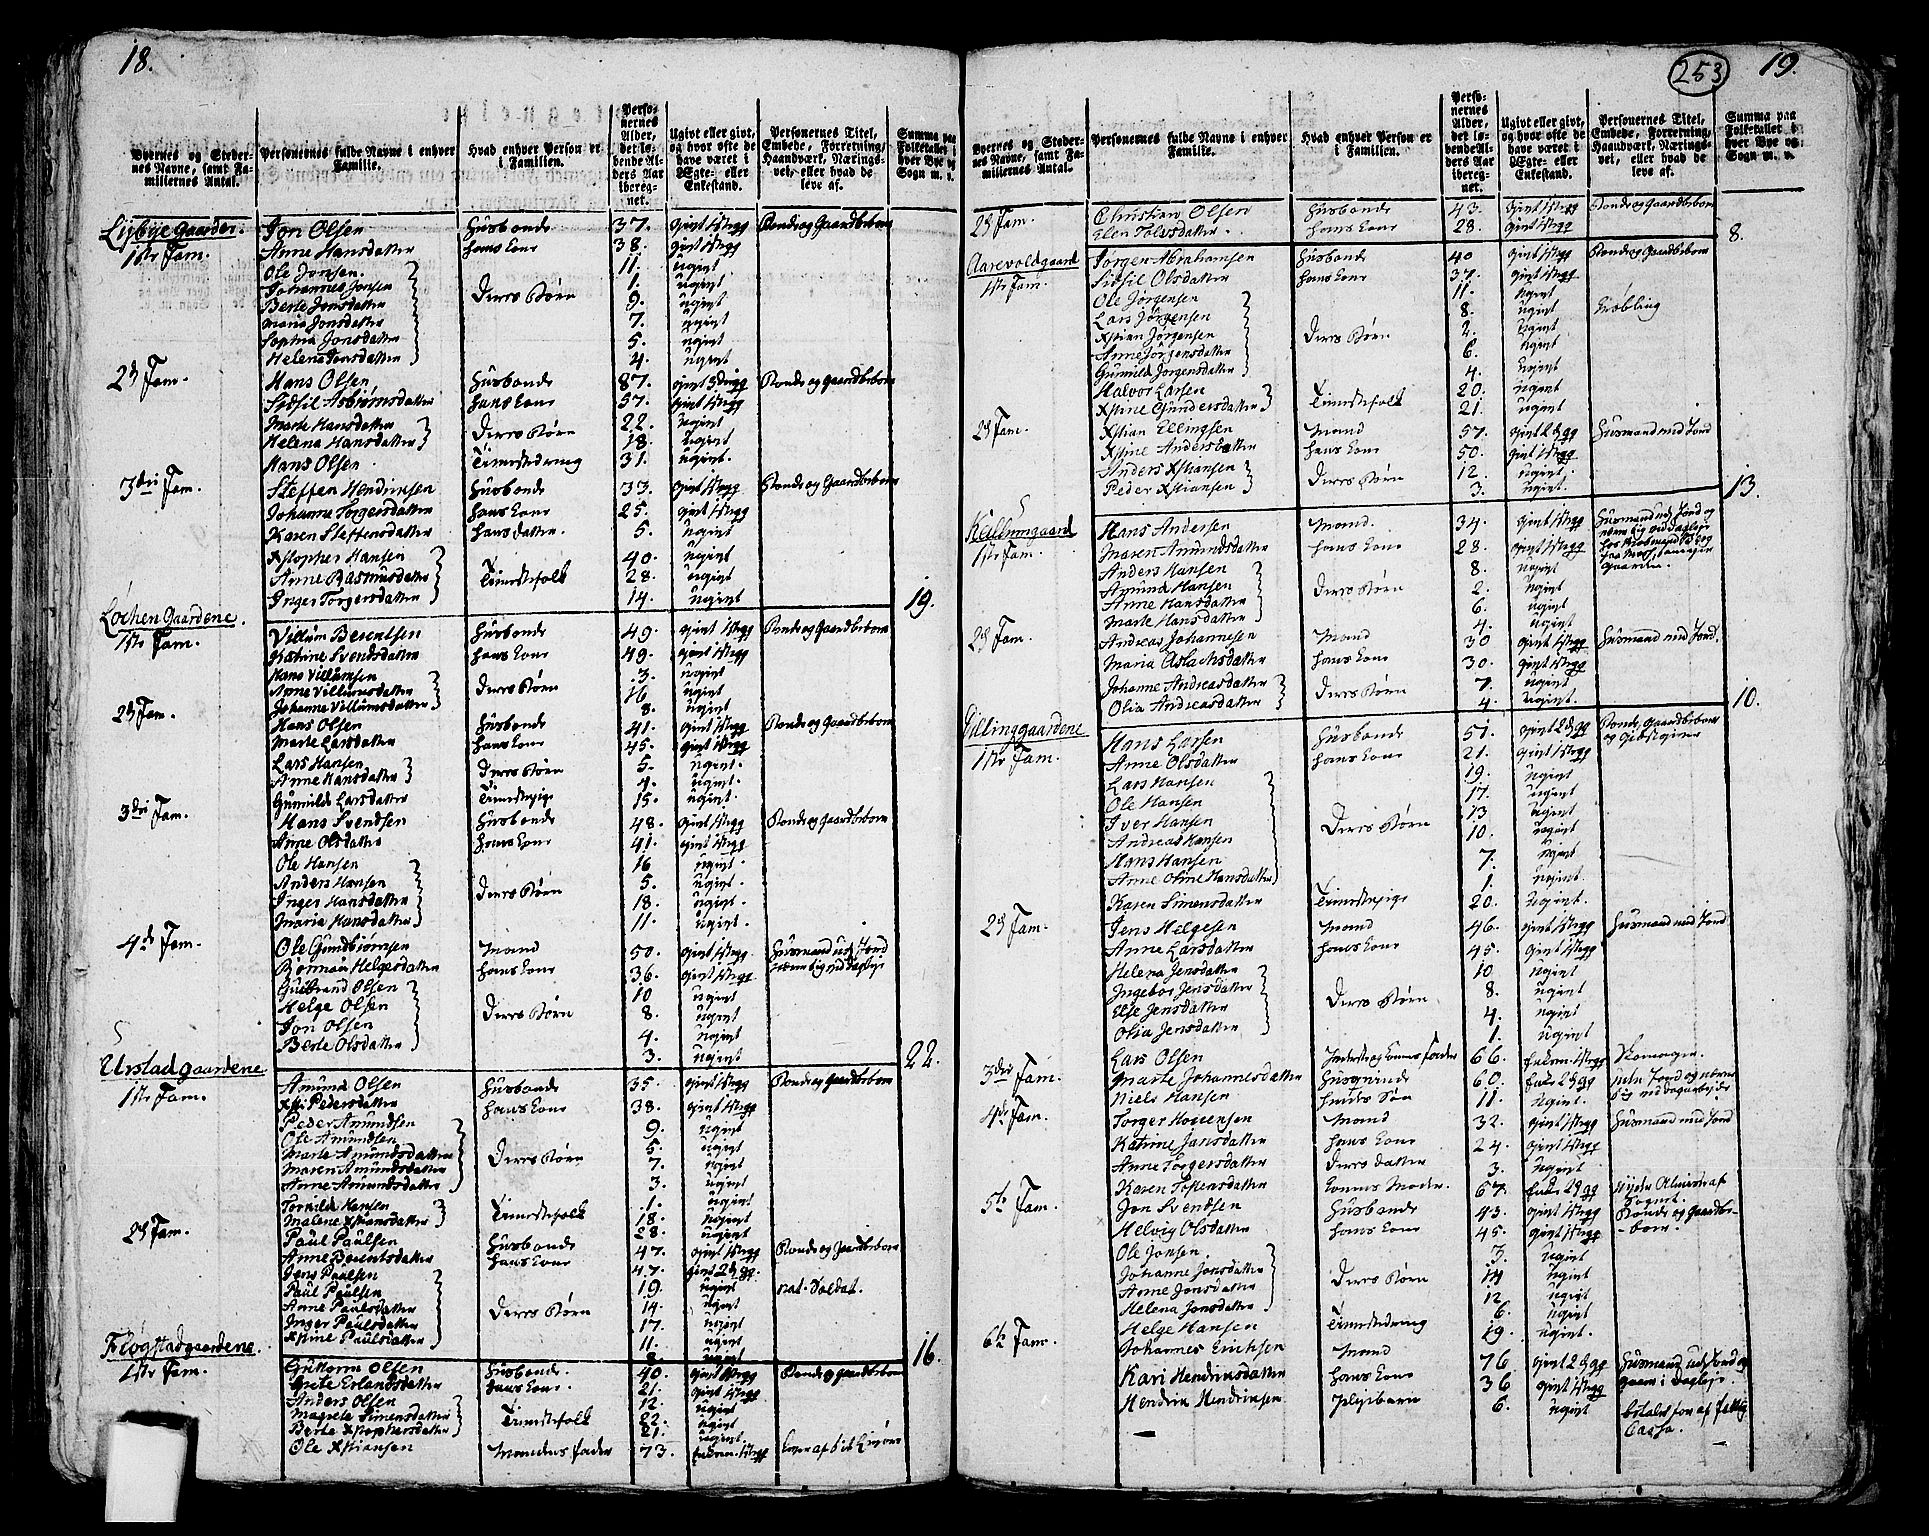 18.
Byernes og Stedernes Navne, samt Familiernes Antal.
Personernes fulde Navne i enhver Familie.
Hvad enhver Person er i Familien.
Personernes Alder, det løbende Alders Aar iberegnet.
Ugivt eller givt, og hvor ofte de have været i Ægte- eller Enkestand.
Personernes Titel, Embede, Forretning, Haandværk, Næringsvei, eller hvad de leve af.
Summa paa Folketallet i hver Bye og Sogn m. v.
Lybye Gaarder. Jon Olsen Husbonde 37. givt 1ste gg Bonde og Gaardbeboer
1ste Fam. Anne Hansdatter hans Kone 38. givt 1ste gg
Ole Jonsen 11. ugivt
Johannes Jonsen 1. ugivt
Berte Jonsdatter Deres Børn 9. ugivt
Maria Jonsdatter 7. ugivt
Sophia Jonsdatter 5. ugivt
Helena Jonsdatter 4. ugivt
2d Fam. Hans Olsen Husbonde 87. givt 3die gg Bonde og Gaardbeboer
Sidsil Asbiørnsdatter hans Kone 57. givt 1ste gg
Marte Hansdatter 22. ugivt
Helena Hansdatter Deres Børn 18. ugivt
Hans Olsen Tienestedreng 31. ugivt.
3die Fam. Steffen Hendrimsen Husbonde 33. givt 1ste gg Bonde og Gaardbeboer
Johanne Torgersdatter hans Kone 25. givt 1ste gg
Karen Steffensdatter hans datter 5. ugivt
Xstopher Hansen 40. ugivt
Anne Rasmusdatter Tienestefolk 28. ugivt
Inger Torgersdatter 14. ugivt 19.
Lochen Gaardene.
1ste Fam. Villum Berentsen Husbonde 49. givt 1ste gg Bonde og Gaardbeboer
Katrine Svendsdatter hans Kone 49. givt 1ste gg
Hans Villumsen 3. ugivt
Anne Villumsdatter Deres Børn 16 ugivt
Johanne Villumsdatter 8. ugivt
2d Fam. Hans Olsen Husbonde 41. givt 1ste gg Bonde og Gaardbeboer
Marte Larsdatter hans Kone 45. givt 1ste gg
Lars Hansen 5. ugivt.
Anne Hansdatter Deres Børn 4. ugivt
Gunnild Larsdatter Tienestepige 15. ugivt.
3die Fam. Hans Svendsen Husbonde 48. givt 1ste gg Bonde og Gaardbeboer
Anne Olsdatter hans Kone 41. givt 1ste gg
Ole Hansen 16 ugivt.
Anders Hansen 5. ugivt.
Inger Hansdatter Deres Børn 18. ugivt.
Maria Hansdatter 11. ugivt.
4de Fam. Ole Gundbiørnsen Mand 50. givt 1ste gg Huusmand ud. Jord
Helgesdatter hans Kone 36. givt 1ste gg
Gulbrand Olsen 10 ugivt
Helge Olsen 8. ugivt
Jon Olsen Deres Børn 4. ugivt
Berte Olsdatter 3. ugivt 22.
Urstad gaardene
1ste Fam. Amund Olsen Husbonde 35. givt 1ste gg Bonde og Gaardbeboer
Pedersdatter hans Kone 38. givt 1ste gg
Peder Amundsen 9. ugivt
Ole Amundsen 5. ugivt
Marte Amundsdatter Deres Børn 7. ugivt
Maren Amundsdatter 3. ugivt
Anne Amundsdatter 1. ugivt
Torkild Hansen 18. ugivt
Malene Xstiansdatter Tienestefolk 28. ugivt
2d Fam. Paul Paulsen Husbonde 47. givt 1ste gg Bonde og Gaardbeboer
Anne Berentsdatter hans Kone 47. givt 2d gg.
Jens Paulsen 19. ugivt nat. Soldat.
Paul Paulsen 14. ugivt
Anne Paulsdatter Deres Børn 17. ugivt
Inger Paulsdatter 11. ugivt
Xstine Paulsdatter 8. ugivt 16.
Flogstadgaardene.
1ste Fam. Guttorm Olsen Husbonde 40. givt 1ste gg Bonde og Gaardbeboer
Grete Erlandsdatter hans Kone. 21. givt 1ste gg
Anders Olsen 12. ugivt
Magrete Simensdatter Tienestefolk 22. ugivt
Berte Xstophersdatter 21. ugivt
Ole Xstiansen Mandens fader 73. Enkem. 1ste gg
253
19.
Byernes og Stedernes Navne, samt Familiernes Antal.
Personernes fulde Navne i enhver Familie.
Hvad enhver Person er i Familien.
Personernes Alder, det løbende Alders Aar iberegnet.
Ugivt eller givt, og hvor ofte de have været i Ægte- eller Enkestand.
Personernes Titel, Embede, Forretning, Haandværk, Næringsvei, eller hvad de leve af.
Summa paa Folketallet i hver Bye og Sogn m. v.
2d Fam. Christian Olsen Husbonde 43. givt 1ste gg Bonde og Gaardbeboer
Elen Tolvsdatter hans Kone 28. givt 1ste gg 8.
Aarevoldgaard Jørgen Abrahamsen Husbonde 40 givt 1ste gg Bonde og Gaardbeboer
1ste Fam. Sidsil Olsdatter hans Kone 37. givt 1ste gg
Ole Jørgensen 11. ugivt
Lars Jørgensen 8. ugivt Krøbling
Xstian Jørgensen Deres Børn 2. ugivt
Anne Jørgensdatter 6. ugivt
Gunnild Jørgensdatter 4. ugivt
Halvor Larsen 20. ugivt
Xstine Gundersdatter Tienestefolk 21. ugivt
2d Fam. Xstian Ellingsen Mand 57. givt 2d gg Huusmand med Jord
Xstine Andersdatter hans Kone 50. givt 1ste gg
Anders Xstiansen Deres Børn 12. ugivt.
Peder Xstiansen 3. ugivt. 13.
Kallumgaard Hans Andersen Mand. 34. givt 1ste gg Huusmand ud. Jord og
1ste Fam. Maren Amundsdatter hans Kone 28. givt 1ste gg
Anders Hansen 8. ugivt
Amund Hansen Deres Børn 2. ugivt
Anne Hansdatter 6. ugivt
Marte Hansdatter 4. ugivt
2d Fam. Andreas Johannesen Mand 30 givt 1ste gg Huusmand med Jord.
Maria Aslachsdatter hans Kone 30. givt 1ste gg
Johanne Andreasdatter Deres Børn 7. ugivt
Olia Andreasdatter 4. ugivt. 10.
Hans Larsen Husbonde 51. givt 2d gg Bonde, Gaardbeboer
1ste Fam. Anne Olsdatter hans Kone 21. givt 1ste gg
Lars Hansen 19. ugivt
Ole Hansen 17. ugivt
Iver Hansen 13 ugivt
Andreas Hansen Deres Børn 10. ugivt
Hans Hansen 7. ugivt
Anne Oline Hansdatter 1. ugivt.
Karen Simensdatter Tienestepige 20. ugivt.
2d Fam. Jens Helgesen Mand 46. givt 1ste gg Huusmand med Jord
Anne Larsdatter hans Kone 45. givt 1ste gg
Helena Jensdatter 10 ugivt
Ingebor Jensdatter 8. ugivt
Else Jensdatter Deres Børn 4. ugivt
Olia Jensdatter 1. ugivt
Lars Olsen 66. Enkem. 1ste gg
3die Fam. Marte Johannesdatter Husqvinde 60. Enke 2d gg
Niels Hansen hendes Søn 11. ugivt.
4de Fam. Torger Mand 32. givt 1ste gg Huusmand med Jord
Katrine Jansdatter hans Kone 24. givt 1ste gg
Anne Torgersdatter deres datter 3. ugivt
Karen Konens Moder. 67. Enke 2d gg nyder Almisse af Sognet.
5te Fam. Jon Svendsen Husbonde 43. givt 1ste gg Bonde og Gaardbe-
Helvig Olsdatter hans Kone 45. givt 1ste gg -boer.
Ole Jonsen. 3. ugivt
Johanne Jonsdatter Deres Børn 14 ugivt
Anne Jonsdatter 12. ugivt
Helena Jonsdatter 6. ugivt
Helge Hansen Tienestedreng 19. ugivt.
6te Fam. Johannes Erichsen Mand 76 givt 2d gg Huusmand ud. Jord og
Kari Hendrimsdatter hans Kone 36 givt 1ste gg gaar i Dagleje
Hendrik Hendrimsen Plejebarn 6. ugivt betales for af Fattig
Cassa.